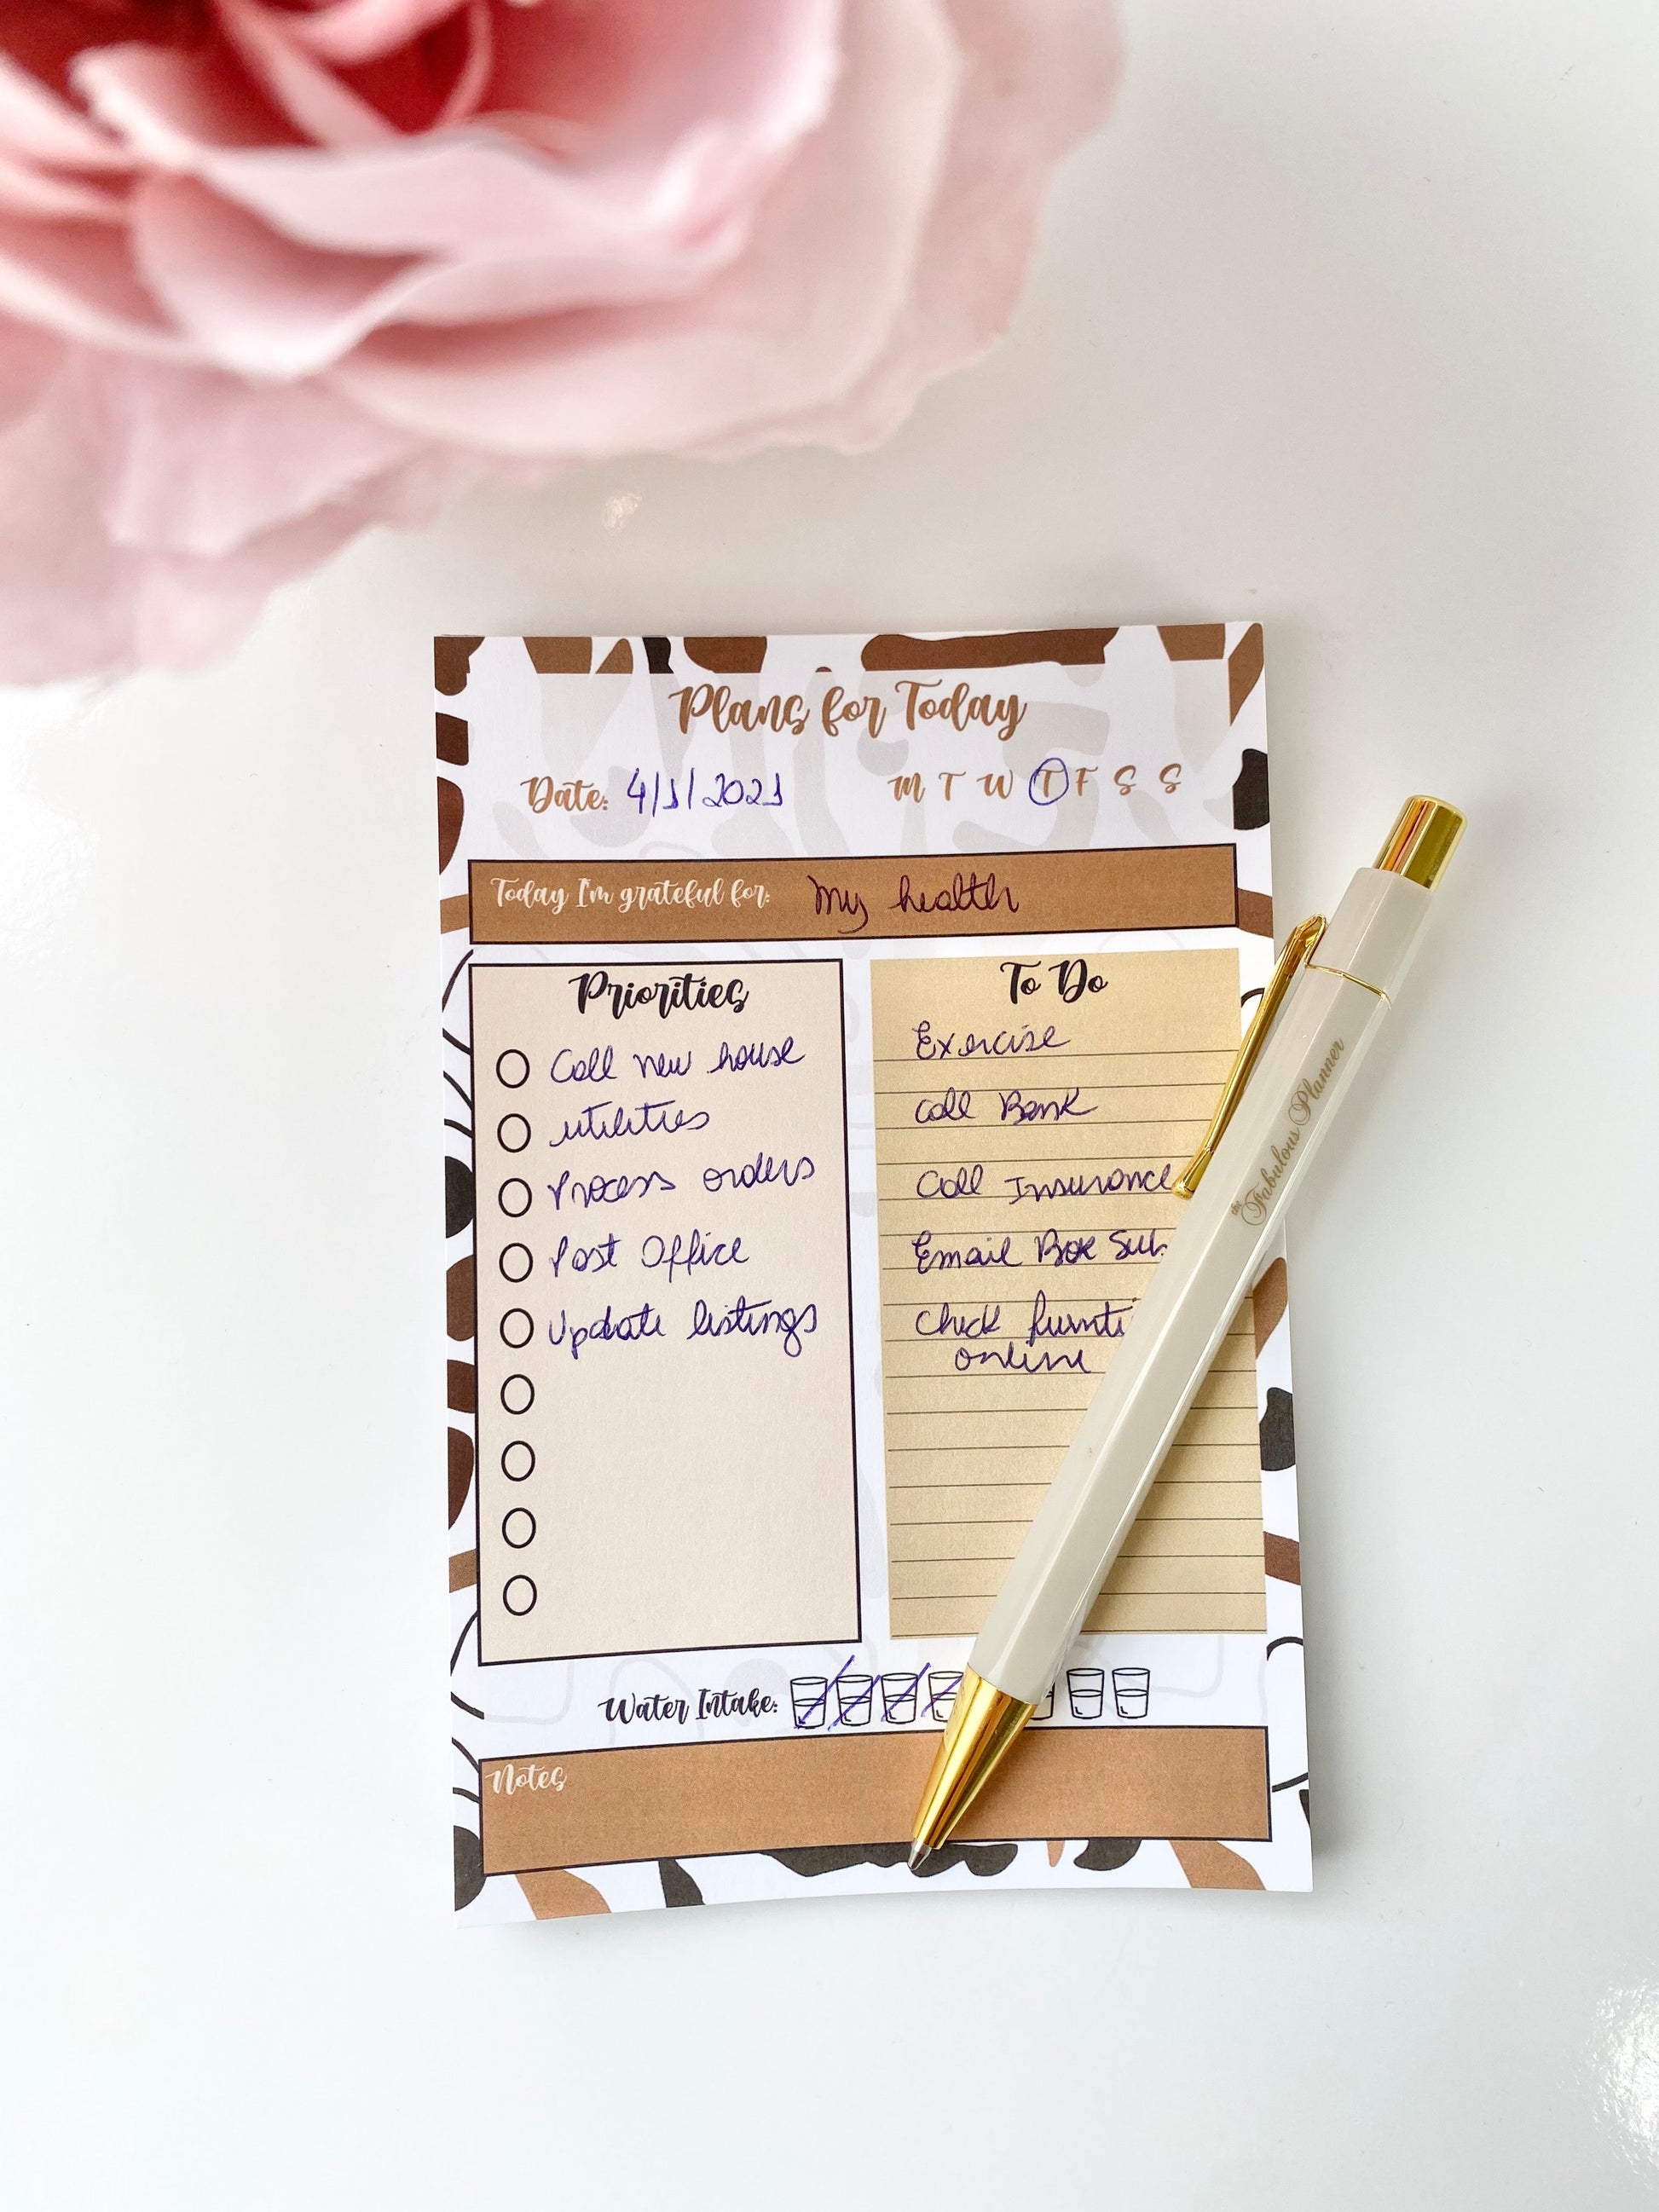 Plans for Today
Date: 4/1/2021 M T W T F S S
Today I'm grateful for: My health
Priorities
Call new house
utilities
Process orders
Post Office
Update listings
To Do
Exercise
Call Bank
Call Insurance
Email Box Sub.
Check
online
Water Intake:
Notes
the Fabulous Planner